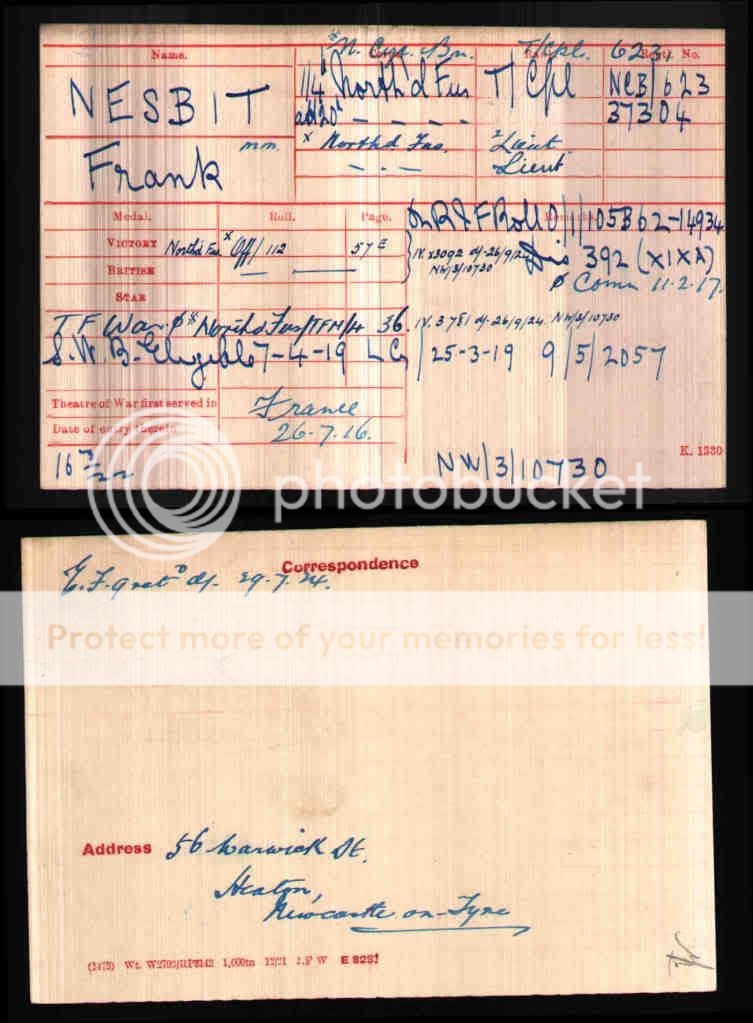 Name. N. Cyc. Bn. T/Cpl. 623. Regtl. No.
NESBIT 1/4 North'd Fus T/Cpl NCB/623
20 - - - - 37304
Frank mm. x North'd Fus. Lieut
- . - . Lieut
Medal. Roll. Page. Remarks
VICTORY North'd Fus x Off/112 57E
BRITISH — —
392 (XIXA)
STAR Ø Comm 11-2-17.
T F War Ø North'd Fus/TFM/4 36. IV. 3781 d/-26/9/24. NW/3/10730
S. W. B. Eligible 7-4-19 25-3-19 9/5/2057
Theatre of War first served in France
Date of entry therein 26.7.16.
K. 1380
NW/3/10730
photobucket
Correspondence
E.F. d/- 29.7.24.
Protect more of your memories for less!
Address 56 Warwick St.
Heaton,
Newcastle on-Tyne
1,000m 12/21 J.P W